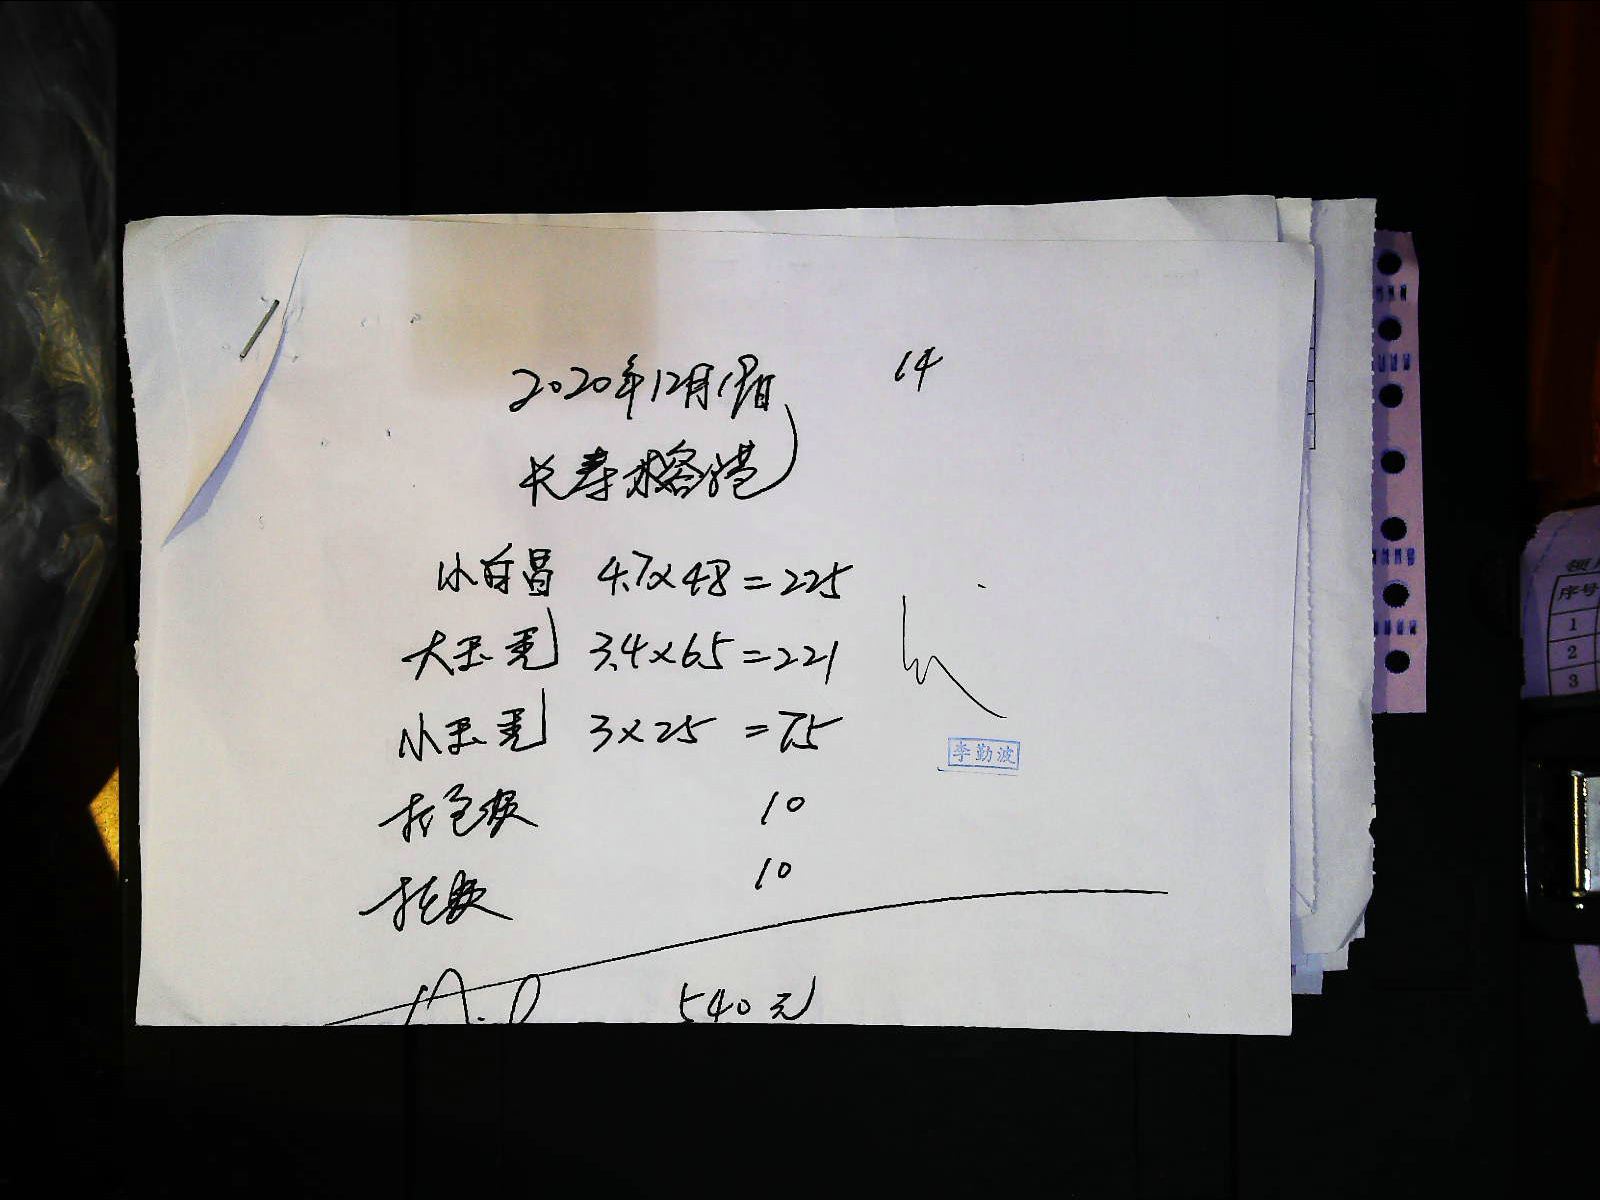 2020年12月1日
14
长寿水容港
小白昌 4.7×48=225
大玉秃 3.4×65=221
小玉秃 3×25 =75
李勤波
打包板 10
10
540元
领
序号
1
2
3